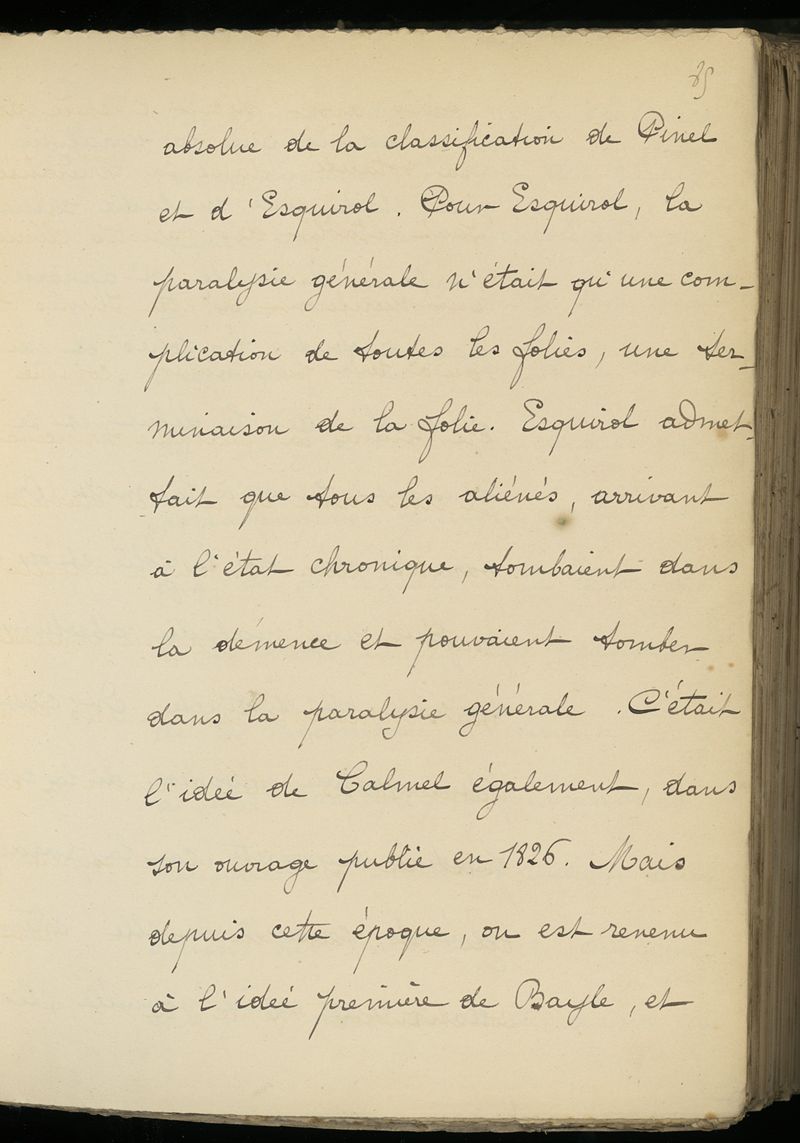 85
absolue de la classification de Pinel
et d'Esquirol. Pour Esquirol, la
paralysie générale n'était qu'une com-
plication de toutes les folies, une ter-
minaison de la folie. Esquirol admet-
tait que tous les aliénés, arrivant
à l'état chronique, tombaient dans
la démence et pouvaient tomber
dans la paralysie générale. C'était
l'idée de Calmel également, dans
son ouvrage publié en 1826. Mais
depuis cette époque, on est revenu
à l'idée première de Bayle, et